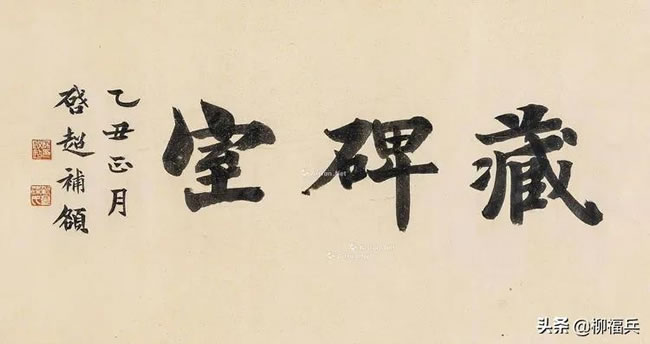 藏碑室
乙丑正月
啓超補額
头条 @柳福兵